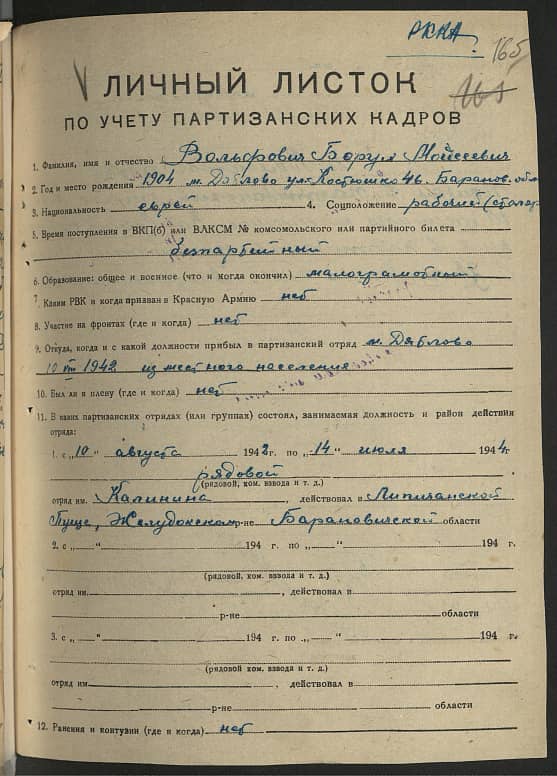 РККА
165
ЛИЧНЫЙ ЛИСТОК
ПО УЧЕТУ ПАРТИЗАНСКИХ КАДРОВ
1. Фамилия, имя и отчество Вольфович Борух Мойсеевич
2. Год и место рождения 1904 м. Дятлово ул. Костюшко 46. Баранов. обл.
3. Национальность еврей 4. Соцположение рабочий (столяр
5. Время поступления в ВКП(б) или ВЛКСМ № комсомольского или партийного билета
безпартейный
6. Образование: общее и военное (что и когда окончил) малограмотный
7. Каким РВК и когда призван в Красную Армию нет
8. Участие на фронтах (где и когда) нет
9. Откуда, когда и с какой должности прибыл в партизанский отряд м. Дятлово
10 VIII 1942 из местного населения
10. Был ли в плену (где и когда) нет
11. В каких партизанских отрядах (или группах) состоял, занимаемая должность и район действия
отряда:
1. с „10" августа 1942 г. по „14" июля 1944 г.
рядовой
(рядовой, ком. взвода и т. д.)
отряд им. Калинина, действовал в Липичанской
Пуще, Желудокском р-не Барановичской области
2. с „ " 194 г. по „ " 194 г.
(рядовой, ком. взвода и т. д.)
отряд им. , действовал в
р-не области
3. с „ " 194 г. по „ " 194 г.
(рядовой, ком. взвода и т. д.)
отряд им , действовал в
р-не области
12. Ранения и контузии (где и когда) нет